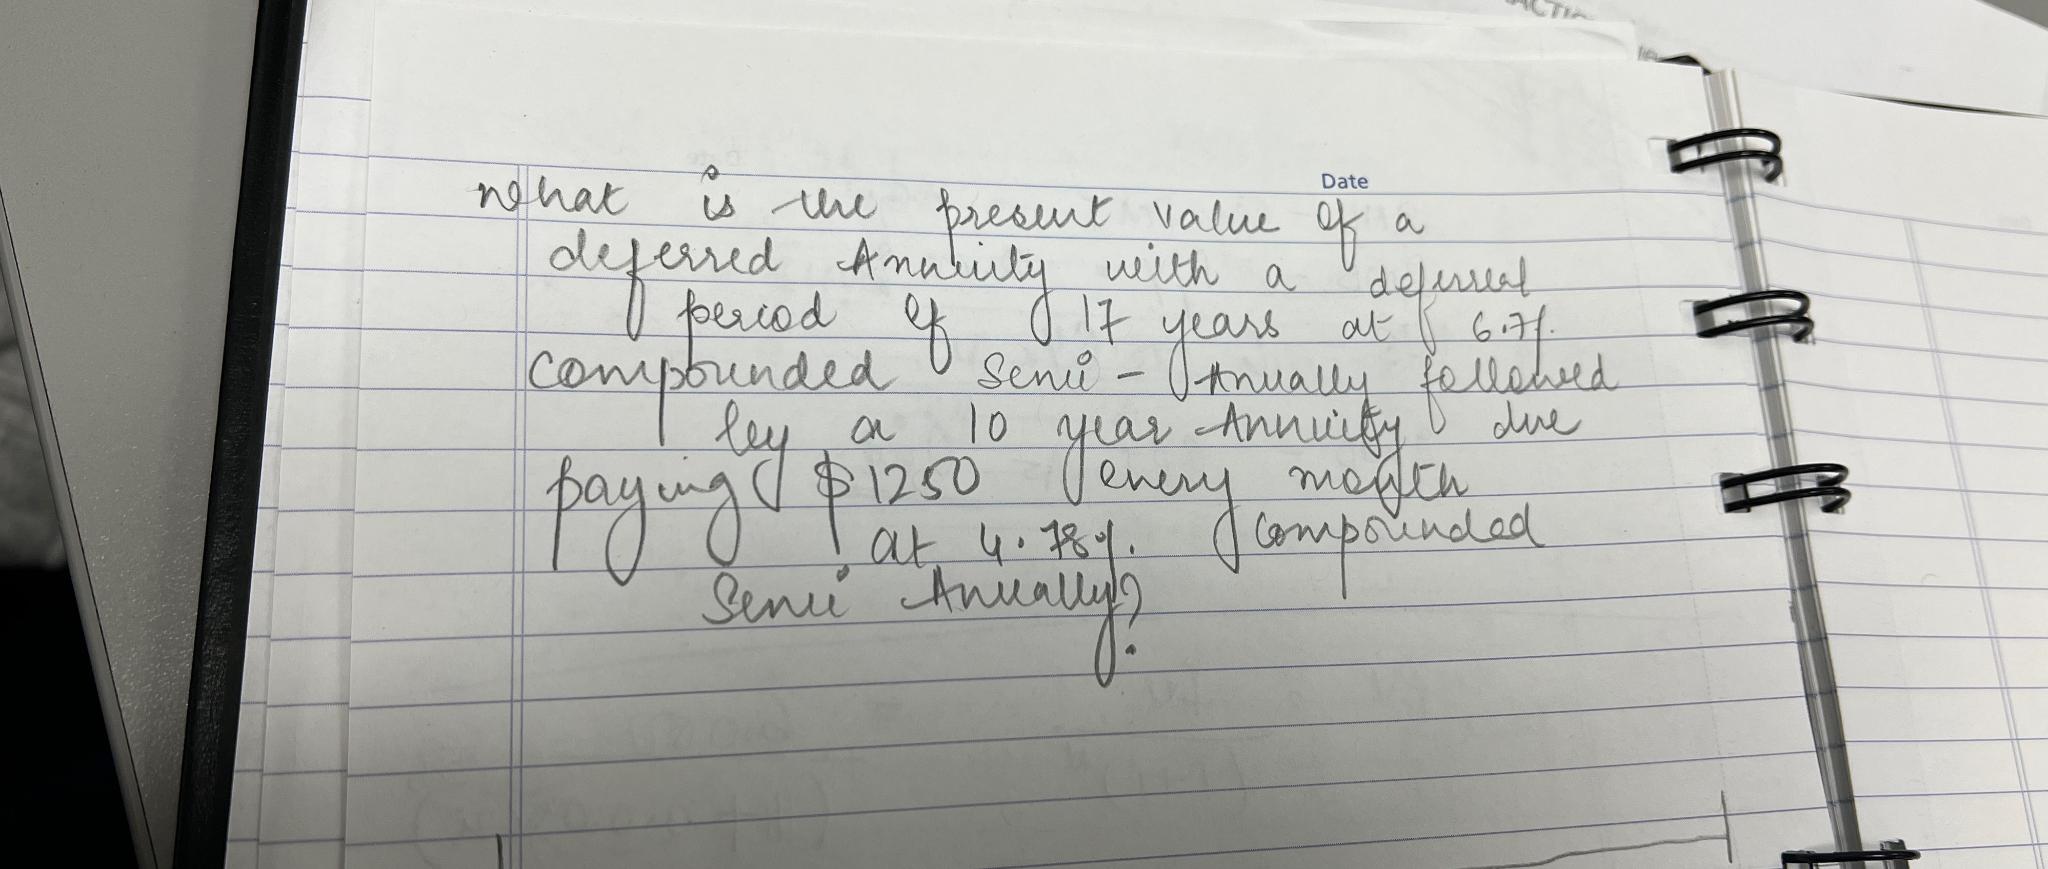 ACTIO
Date
What is the present value of a
deferred Annuity with a deferral
period of 17 years at 6.7%
compounded Semi-Anually followed
by a 10 year Annuity due
paying $1250 every month
at 4.78%. compounded
Semi Anually?